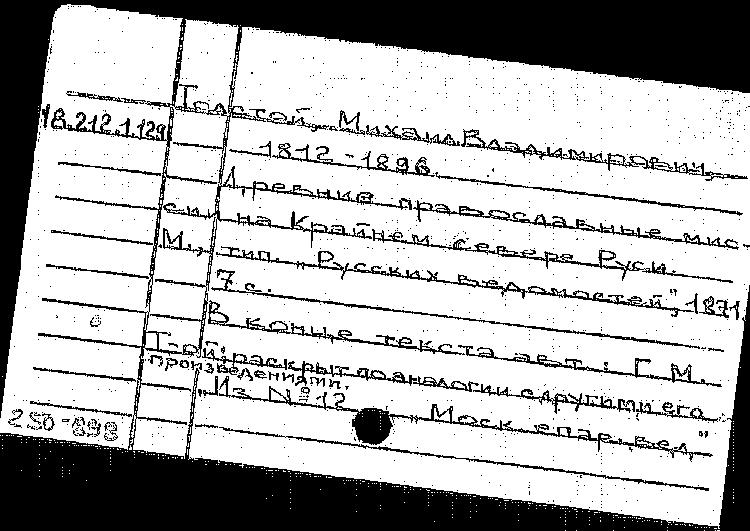 Толстой, Михаил Владимирович,
18.212.1.129
1812-1896.
Древния православные мис-
сии на Крайнем Севере Руси.
М., тип. „Русских ведомостей", 1871
7 с.
В конце текста авт.: Г. М.
Т-ой; раскрыт по аналогии с другими его
произведениями.
„Из № 12 „Моск. епар. вед."
250-898